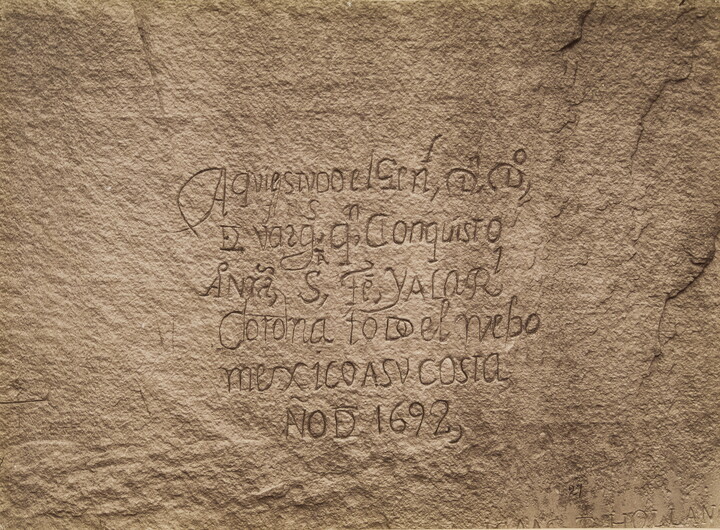 Aqui estubo el Genl, Dn. Do,
De Vargs, qn, Conquisto
Anra, Sta, Fe, Y A la Rl
Corona todo el Nuebo
mexico A su costa,
Año De 1692,